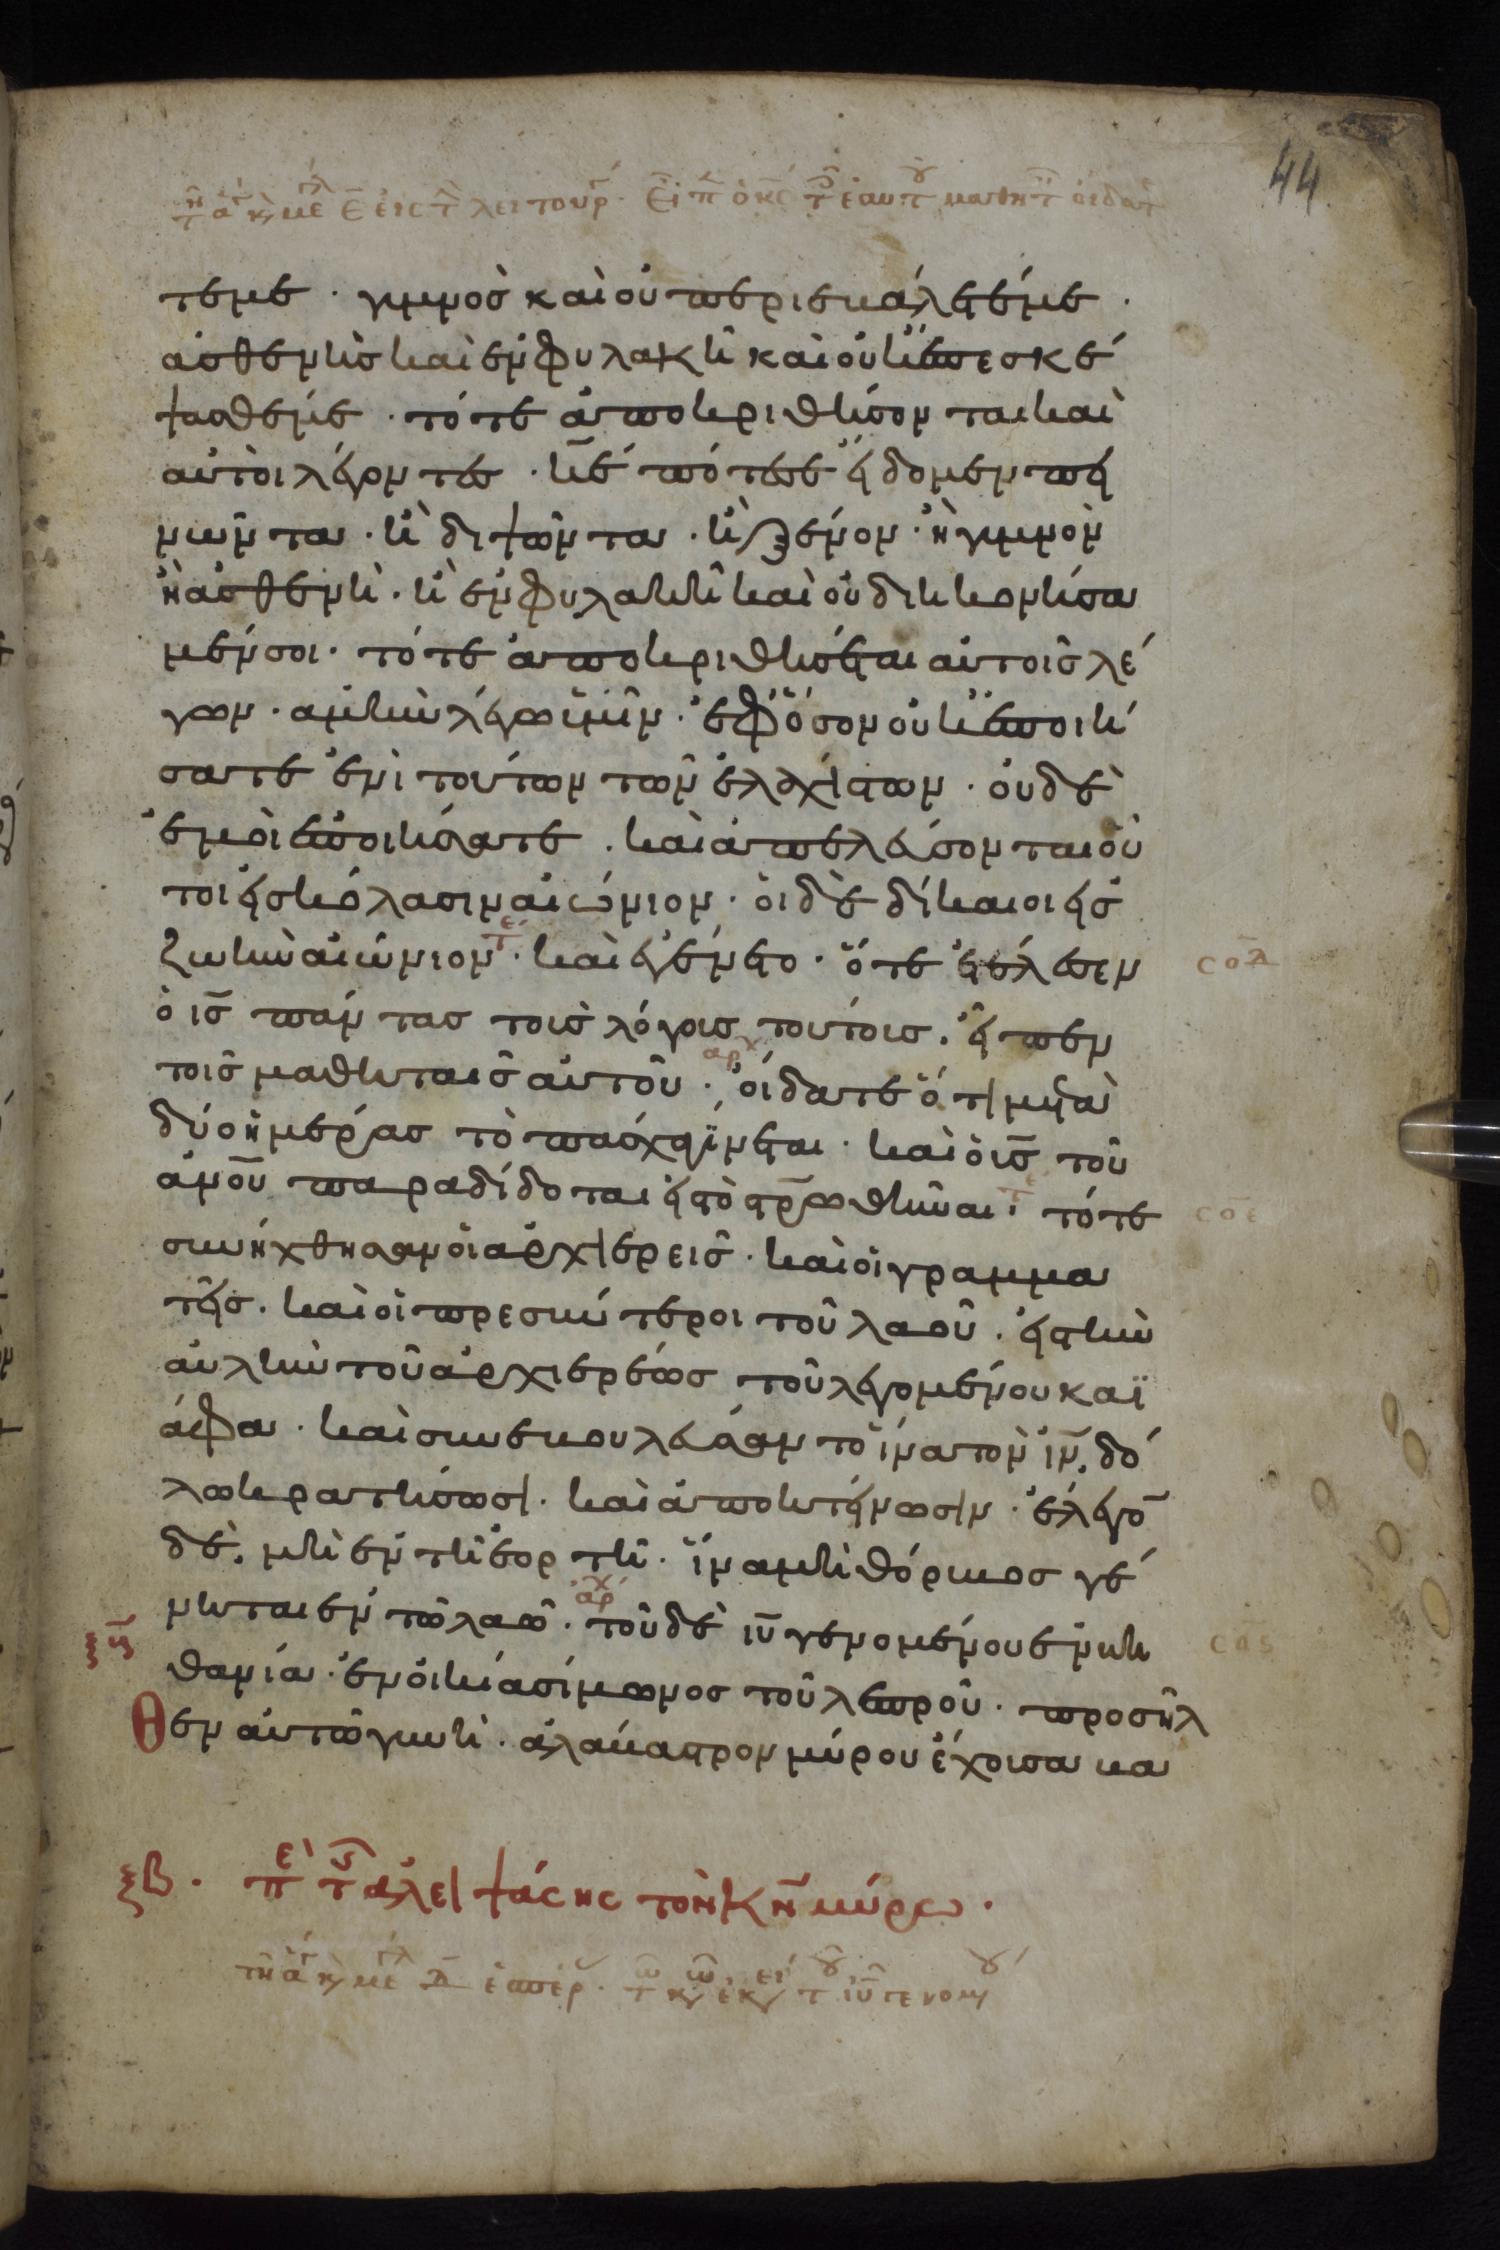 44
τεμε · γυμνὸσ καὶ οὐ περιεβάλετέ με ·
ἀσθενὴσ καὶ ἐν φυλακῆ καὶ οὐκ ἐπεσκέ
ψασθέ με · τότε ἀποκριθήσονται καὶ
αὐτοὶ λέγοντεσ · κ̅ε̅ πότε σε εἴδομεν πει
νῶντα · ἢ διψῶντα · ἢ ξένον · ἢ γυμνὸν
ἢ ἀσθενῆ · ἢ ἐν φυλακῆ καὶ οὐ διηκονήσα
μέν σοι · τότε ἀποκριθήσεται αὐτοῖσ λέ
γων · ἀμὴν λέγω ὑμῖν · ἐφ' ὅσον οὐκ ἐποιή
σατε ἑνὶ τούτων τῶν ἐλαχίστων · οὐδὲ
ἐμοὶ ἐποιήσατε · καὶ ἀπελεύσονται οὗ
τοι εἰσ κόλασιν αἰώνιον · οἱ δὲ δίκαιοι εἰσ
ζωὴν αἰώνιον · καὶ ἐγένετο · ὅτε ἐτέλεσεν
ὁ ι̅σ̅ πάντασ τοὺσ λόγουσ τούτουσ · εἶπεν
τοῖσ μαθηταῖσ αὐτοῦ · οἴδατε ὅτι μετὰ
δύο ἡμέρασ τὸ πάσχα γίνεται · καὶ ὁ υ̅σ̅ τοῦ
α̅ν̅ο̅υ̅ παραδίδοται εἰσ τὸ σ̅τ̅ρ̅ωθῆναι · τότε
συνήχθησαν οἱ ἀρχιερεῖσ · καὶ οἱ γραμμα
τεῖσ · καὶ οἱ πρεσβύτεροι τοῦ λαοῦ · εἰσ τὴν
αὐλὴν τοῦ ἀρχιερέωσ τοῦ λεγομένου καϊ
άφα · καὶ συνεβουλεύσαντο ἵνα τὸν ι̅ν̅ δό
λω κρατήσωσι · καὶ ἀποκτείνωσιν · ἔλεγο̅
δέ · μὴ ἐν τῆ ἑορτῆ · ἵνα μὴ θόρυβοσ γέ
νηται ἐν τῶ λαῶ · τοῦ δὲ ι̅υ̅ γενομένου ἐν βη
θανία · ἐν οἰκία σίμωνοσ τοῦ λεπροῦ · προσῆλ
θεν αὐτῶ γυνὴ · ἀλάβαστρον μύρου ἔχουσα βα
ξβ · πε τ ἀλειψάσησ τὸν κ̅ν̅ μύρω ·